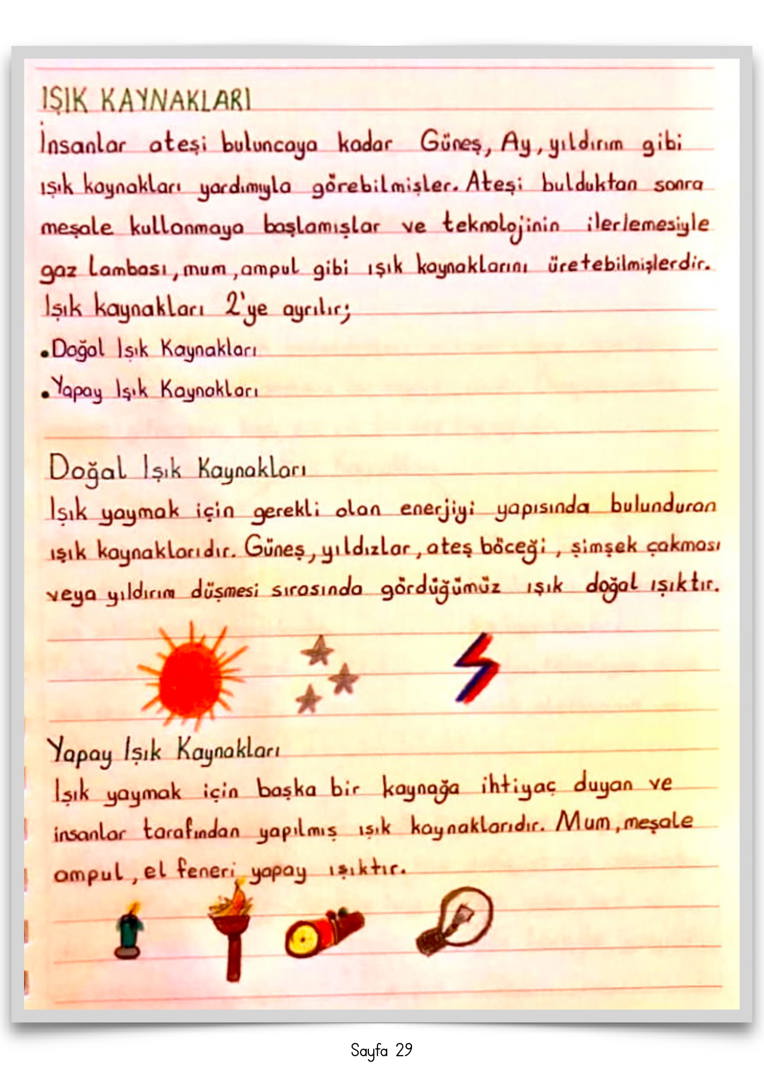 IŞIK KAYNAKLARI
İnsanlar ateşi buluncaya kadar Güneş, Ay, yıldırım gibi
ışık kaynakları yardımıyla görebilmişler. Ateşi bulduktan sonra
meşale kullanmaya başlamışlar ve teknolojinin ilerlemesiyle
gaz lambası, mum, ampul gibi ışık kaynaklarını üretebilmişlerdir.
Işık kaynakları 2'ye ayrılır;
• Doğal Işık Kaynakları
• Yapay Işık Kaynakları
Doğal Işık Kaynakları
Işık yaymak için gerekli olan enerjiyi yapısında bulunduran
ışık kaynaklarıdır. Güneş, yıldızlar, ateş böceği, şimşek çakması
veya yıldırım düşmesi sırasında gördüğümüz ışık doğal ışıktır.
Yapay Işık Kaynakları
Işık yaymak için başka bir kaynağa ihtiyaç duyan ve
insanlar tarafından yapılmış ışık kaynaklarıdır. Mum, meşale
ampul, el feneri yapay ışıktır.
Sayfa 29